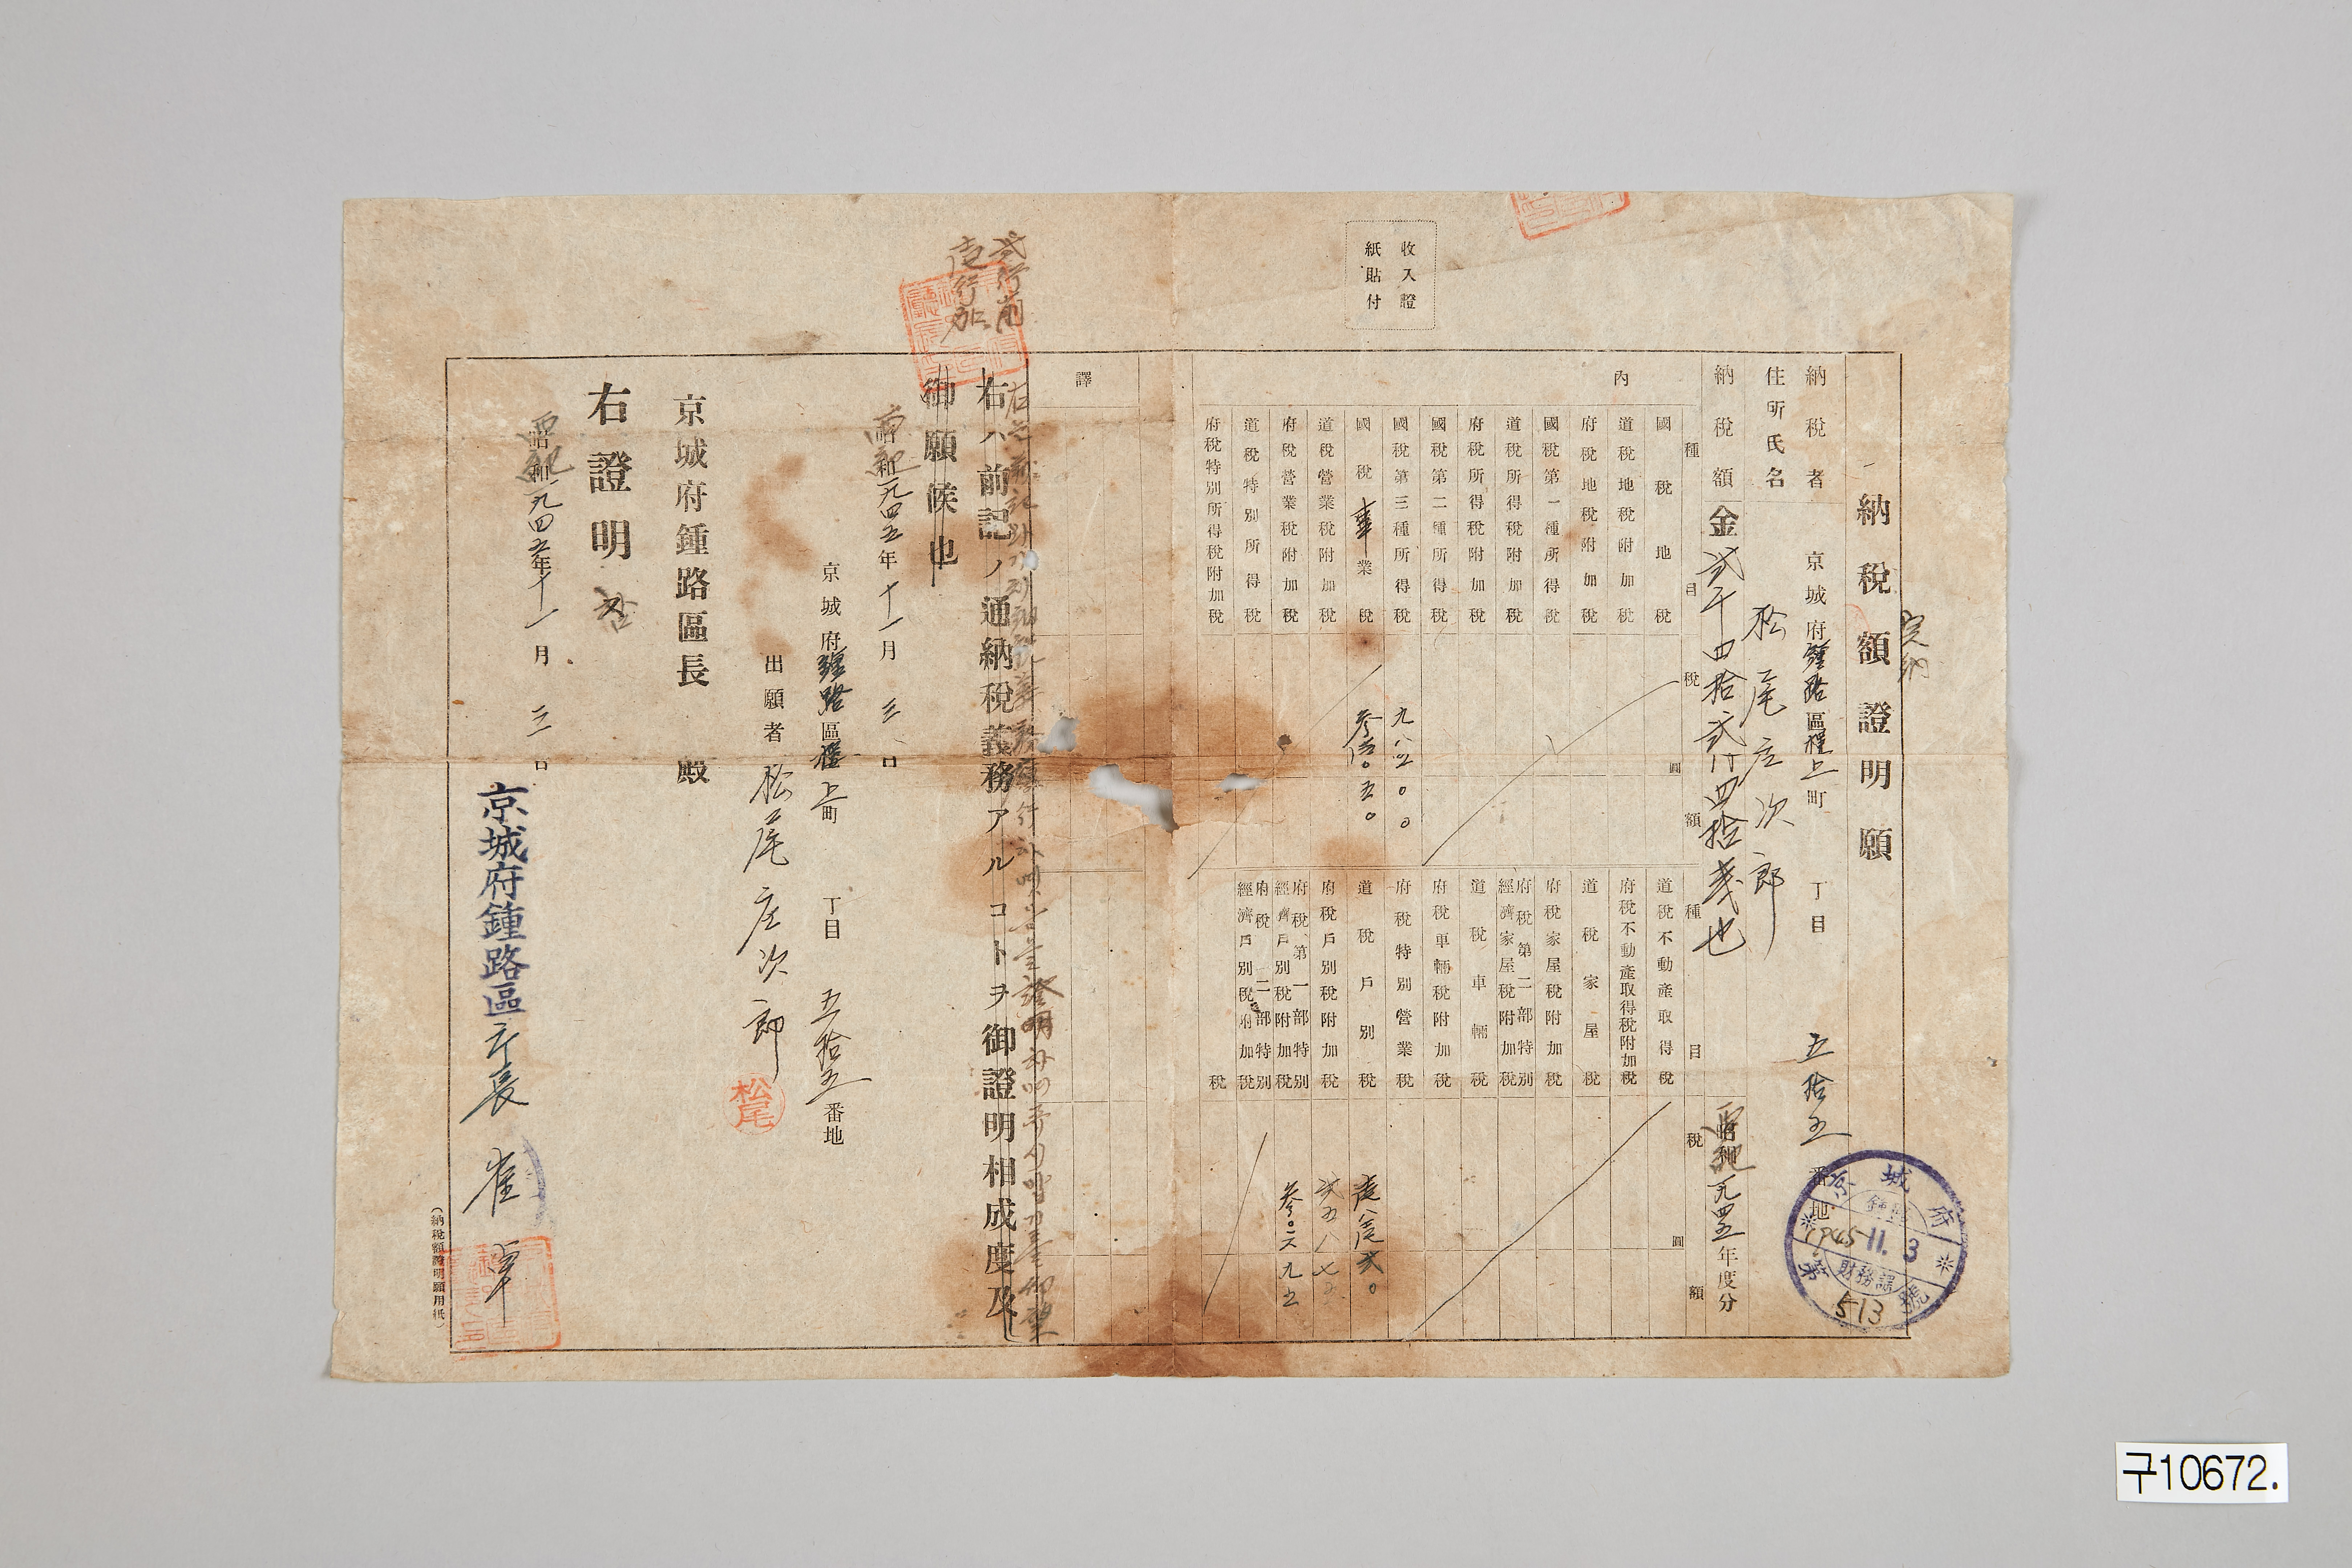 完納
納稅額證明願
納稅者
住所氏名
京城府鍾路區樓上町 丁目 五拾五番地
松尾庄次郎
納稅額 金貳千四拾貳円四拾戔也
西紀一九四五年度分
京城府
鍾路
1945.11.3
財務課
第513號
收入證
紙貼付
內
譯
種目 稅額
圓
國稅地稅
道稅地稅附加稅
府稅地稅附加稅
國稅第一種所得稅
道稅所得稅附加稅
府稅所得稅附加稅
國稅第二種所得稅
國稅第三種所得稅 九八四〇〇
國稅事業稅 參七〇五〇
道稅營業稅附加稅
府稅營業稅附加稅
道稅特別所得稅
府稅特別所得稅附加稅
種目 稅額
圓
道稅不動產取得稅
府稅不動產取得稅附加稅
道稅家屋稅
府稅家屋稅附加稅
府稅第二部特別
經濟家屋稅附加稅
道稅車輛稅
府稅車輛稅附加稅
府稅特別營業稅
道稅戶別稅 壹八壹貳〇
府稅戶別稅附加稅
府稅第一部特別
經濟戶別稅附加稅
府稅二部特別
經濟戶別稅附加稅
稅
貳行削
壹行加
右ハ前記ノ通納稅義務アルコトヲ御證明相成度及
御願候也
西紀一九四五年十一月三日
京城府鍾路區樓上町 丁目 五拾五番地
出願者 松尾庄次郎
松尾
京城府鍾路區長 殿
右證明함
西紀一九四五年十一月三日
京城府鍾路區長 崔
(納稅額證明願用紙)
구10672.